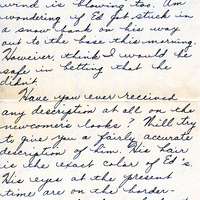 wind is blowing too. Am
wondering if Ed got stuck in
a snow bank on his way
out to the base this morning.
However, think I would be
safe in betting that he
didn't.
Have you ever received
any description at all on the
newcomer's looks? I'll try
to give you a fairly accurate
description of him. His hair
is the exact color of Ed's.
His eyes at the present
time are on the border-